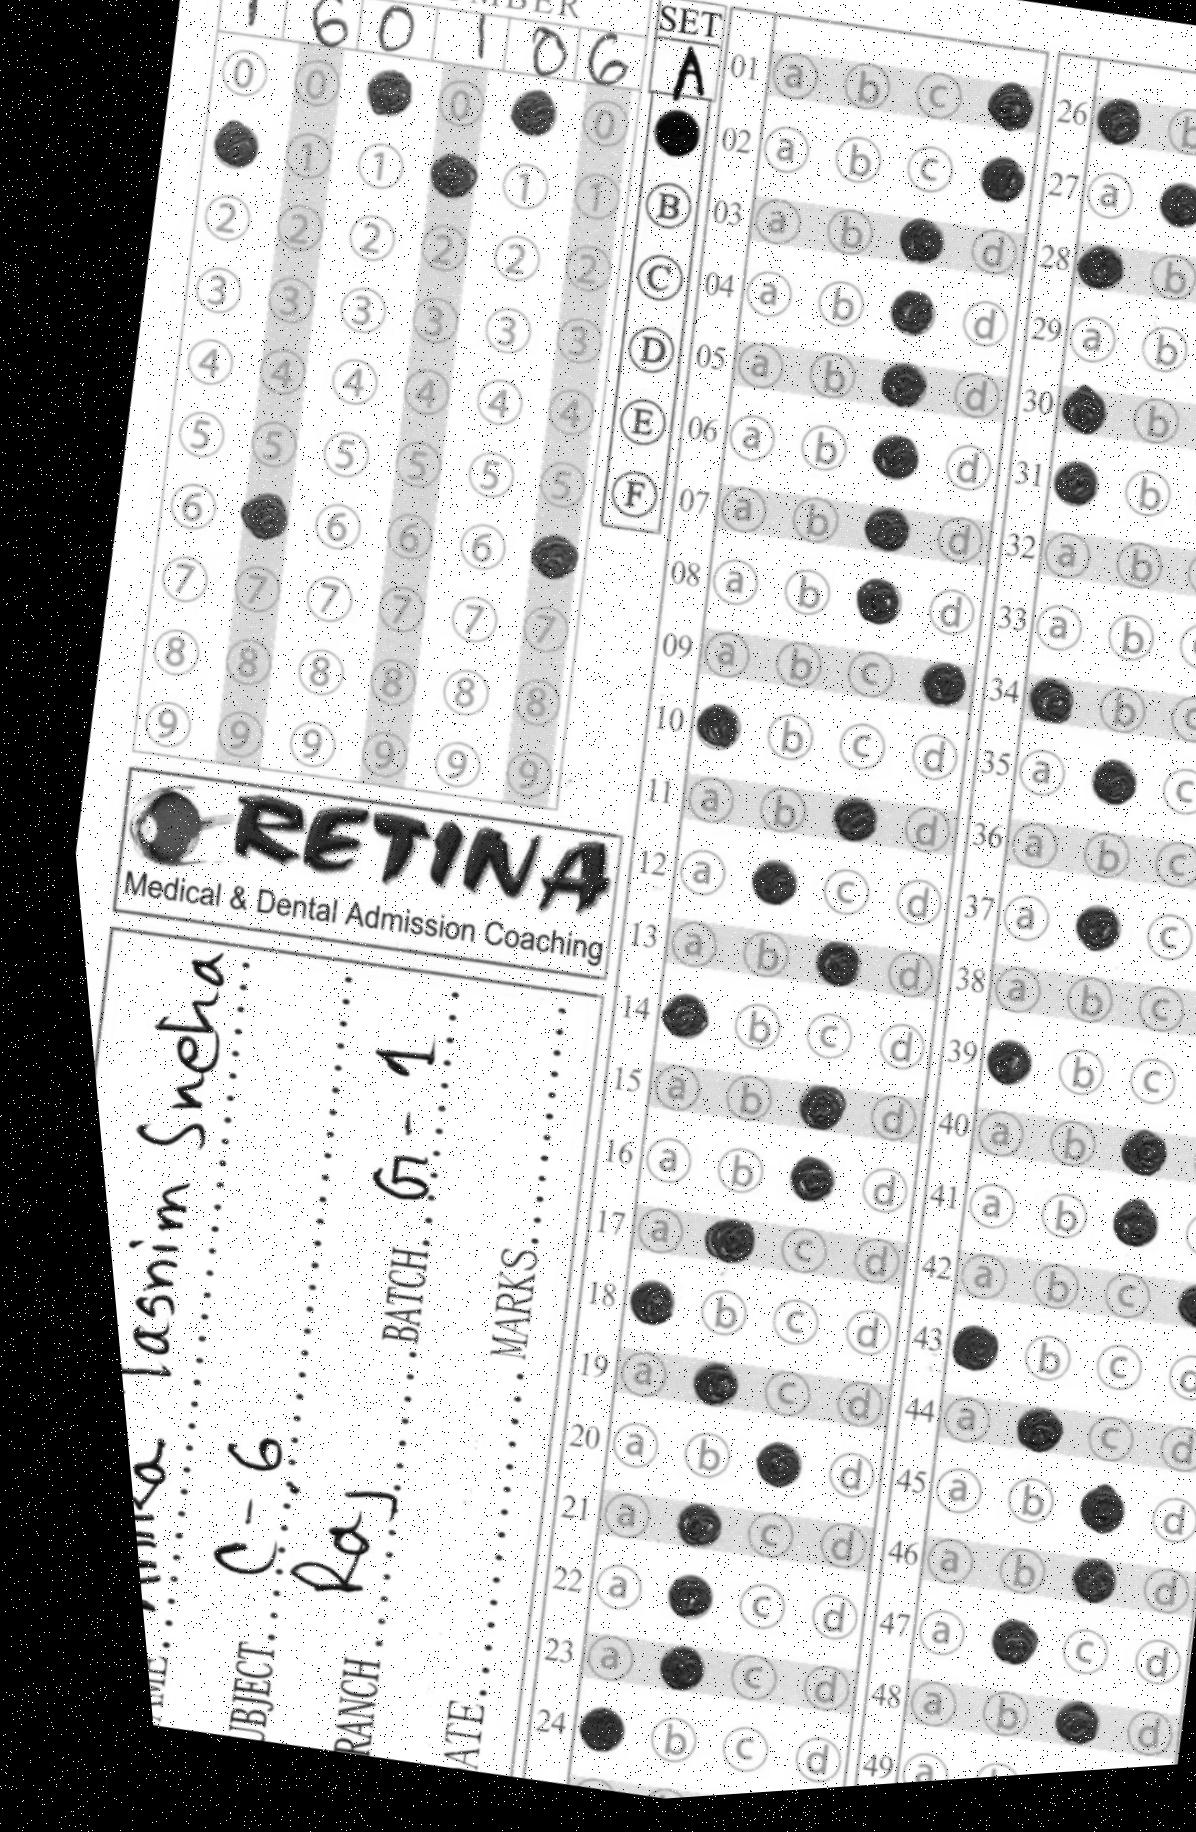 1 6 0 1 0 6
SET
A
0 0 0 0
1 1 1 1
2 2 2 2 2 2
3 3 3 3 3 3
4 4 4 4 4 4
5 5 5 5 5 5
6 6 6 6
7 7 7 7 7 7
8 8 8 8 8 8
9 9 9 9 9 9
B
C
D
E
F
RETINA
Medical & Dental Admission Coaching
Tasnim Sneha
C-6
Raj
BATCH G-1
MARKS
01 a b c
02 a b c
03 a b d
04 a b d
05 a b d
06 a b d
07 a b d
08 a b d
09 a b c
10 b c d
11 a b d
12 a c d
13 a b d
14 b c d
15 a b d
16 a b d
17 a c d
18 b c d
19 a c d
20 a b d
21 a c d
22 a c d
23 a c d
24 b c d
26 b
27 a
28 b
29 a b
30 b
31 b
32 a b
33 a b
34 b c
35 a c
36 a b c
37 a c
38 a b c
39 b c
40 a b
41 a b
42 a b c
43 b c d
44 a c d
45 a b d
46 a b d
47 a c d
48 a b d
49 a